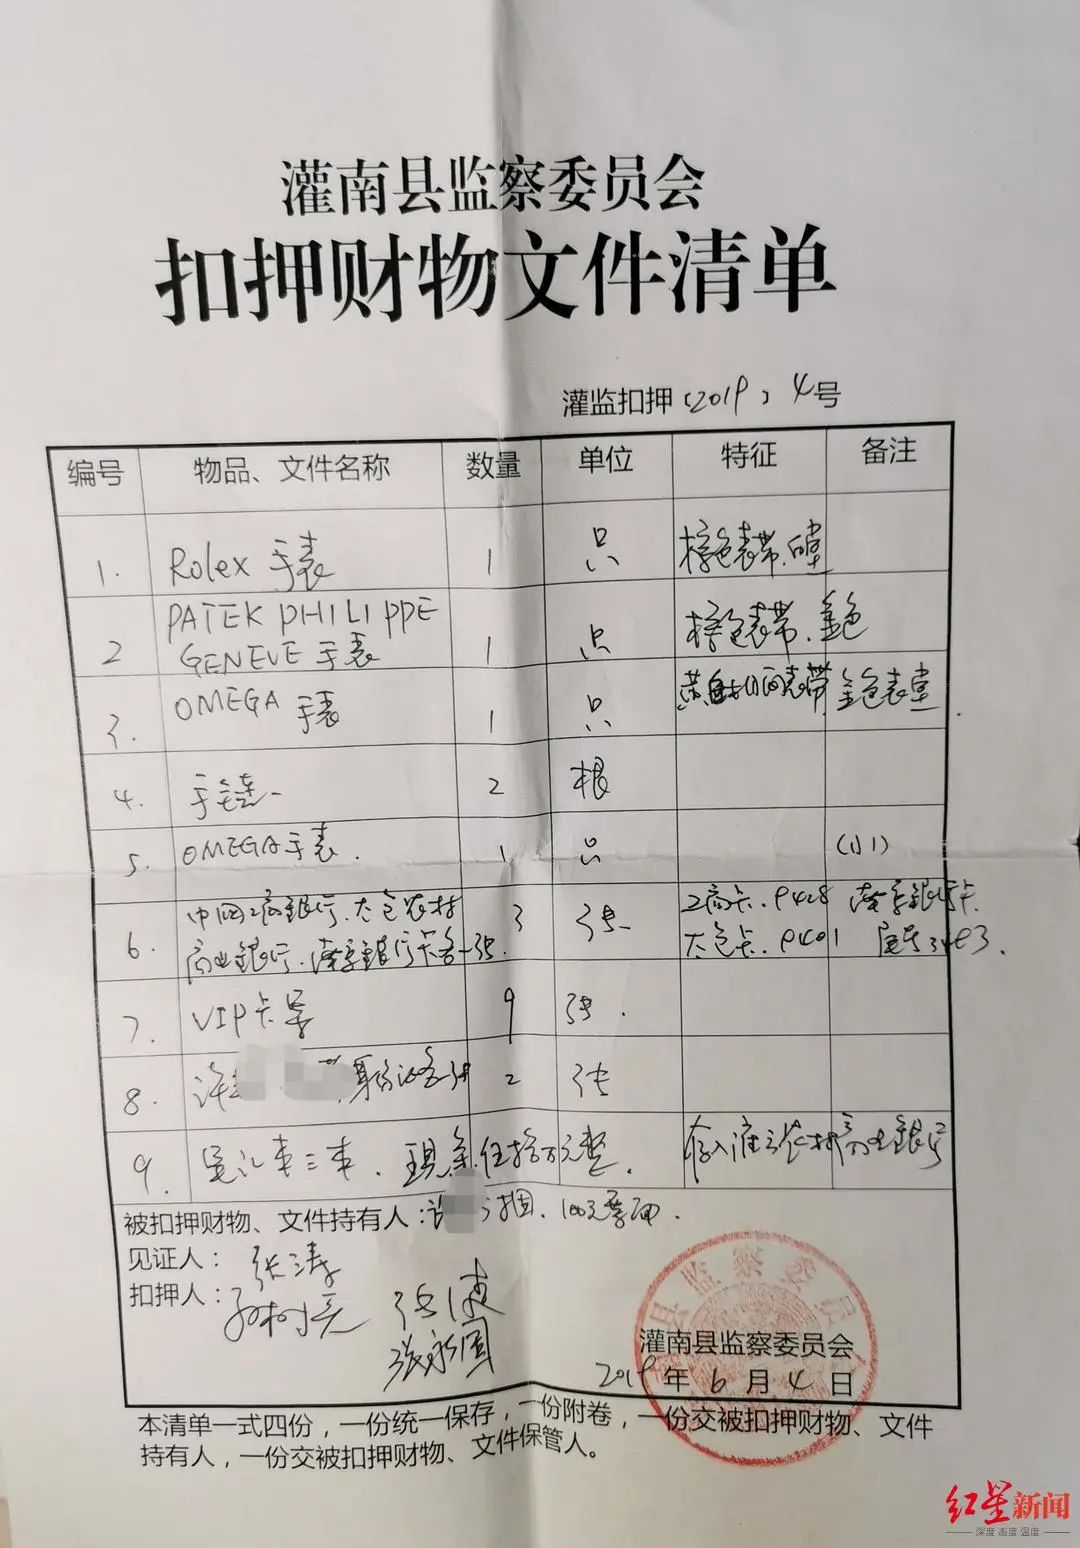 灌南县监察委员会
扣押财物文件清单
灌监扣押〔2019〕4号
编号 物品、文件名称 数量 单位 特征 备注
1. Rolex 手表 1 只 棕色表带、
2 PATEK PHILIPPE GENEVE 手表 1 只 棕色表带、金色
3. OMEGA 手表 1 只 表带 金色表
4. 手链 2 根
5. OMEGA手表. 1 只
6. 中国工商银行、太仓农村商业银行、南京银行卡各一张. 3 张 工商卡. 9428 南京银行卡
太仓卡. 9401 尾号
7. VIP卡等 9 张.
8. 许 身份证各一张 2 张
9. 笔记本三本、现金伍拾万元整. 存入灌云农村商业银行
被扣押财物、文件持有人:许 100元票面.
见证人: 张涛
扣押人: 孙树亮
张永国
灌南县监察委员会
2019年6月4日
县监察委员
本清单一式四份，一份统一保存，一份附卷，一份交被扣押财物、文件
持有人，一份交被扣押财物、文件保管人。
红星新闻
深度 态度 温度